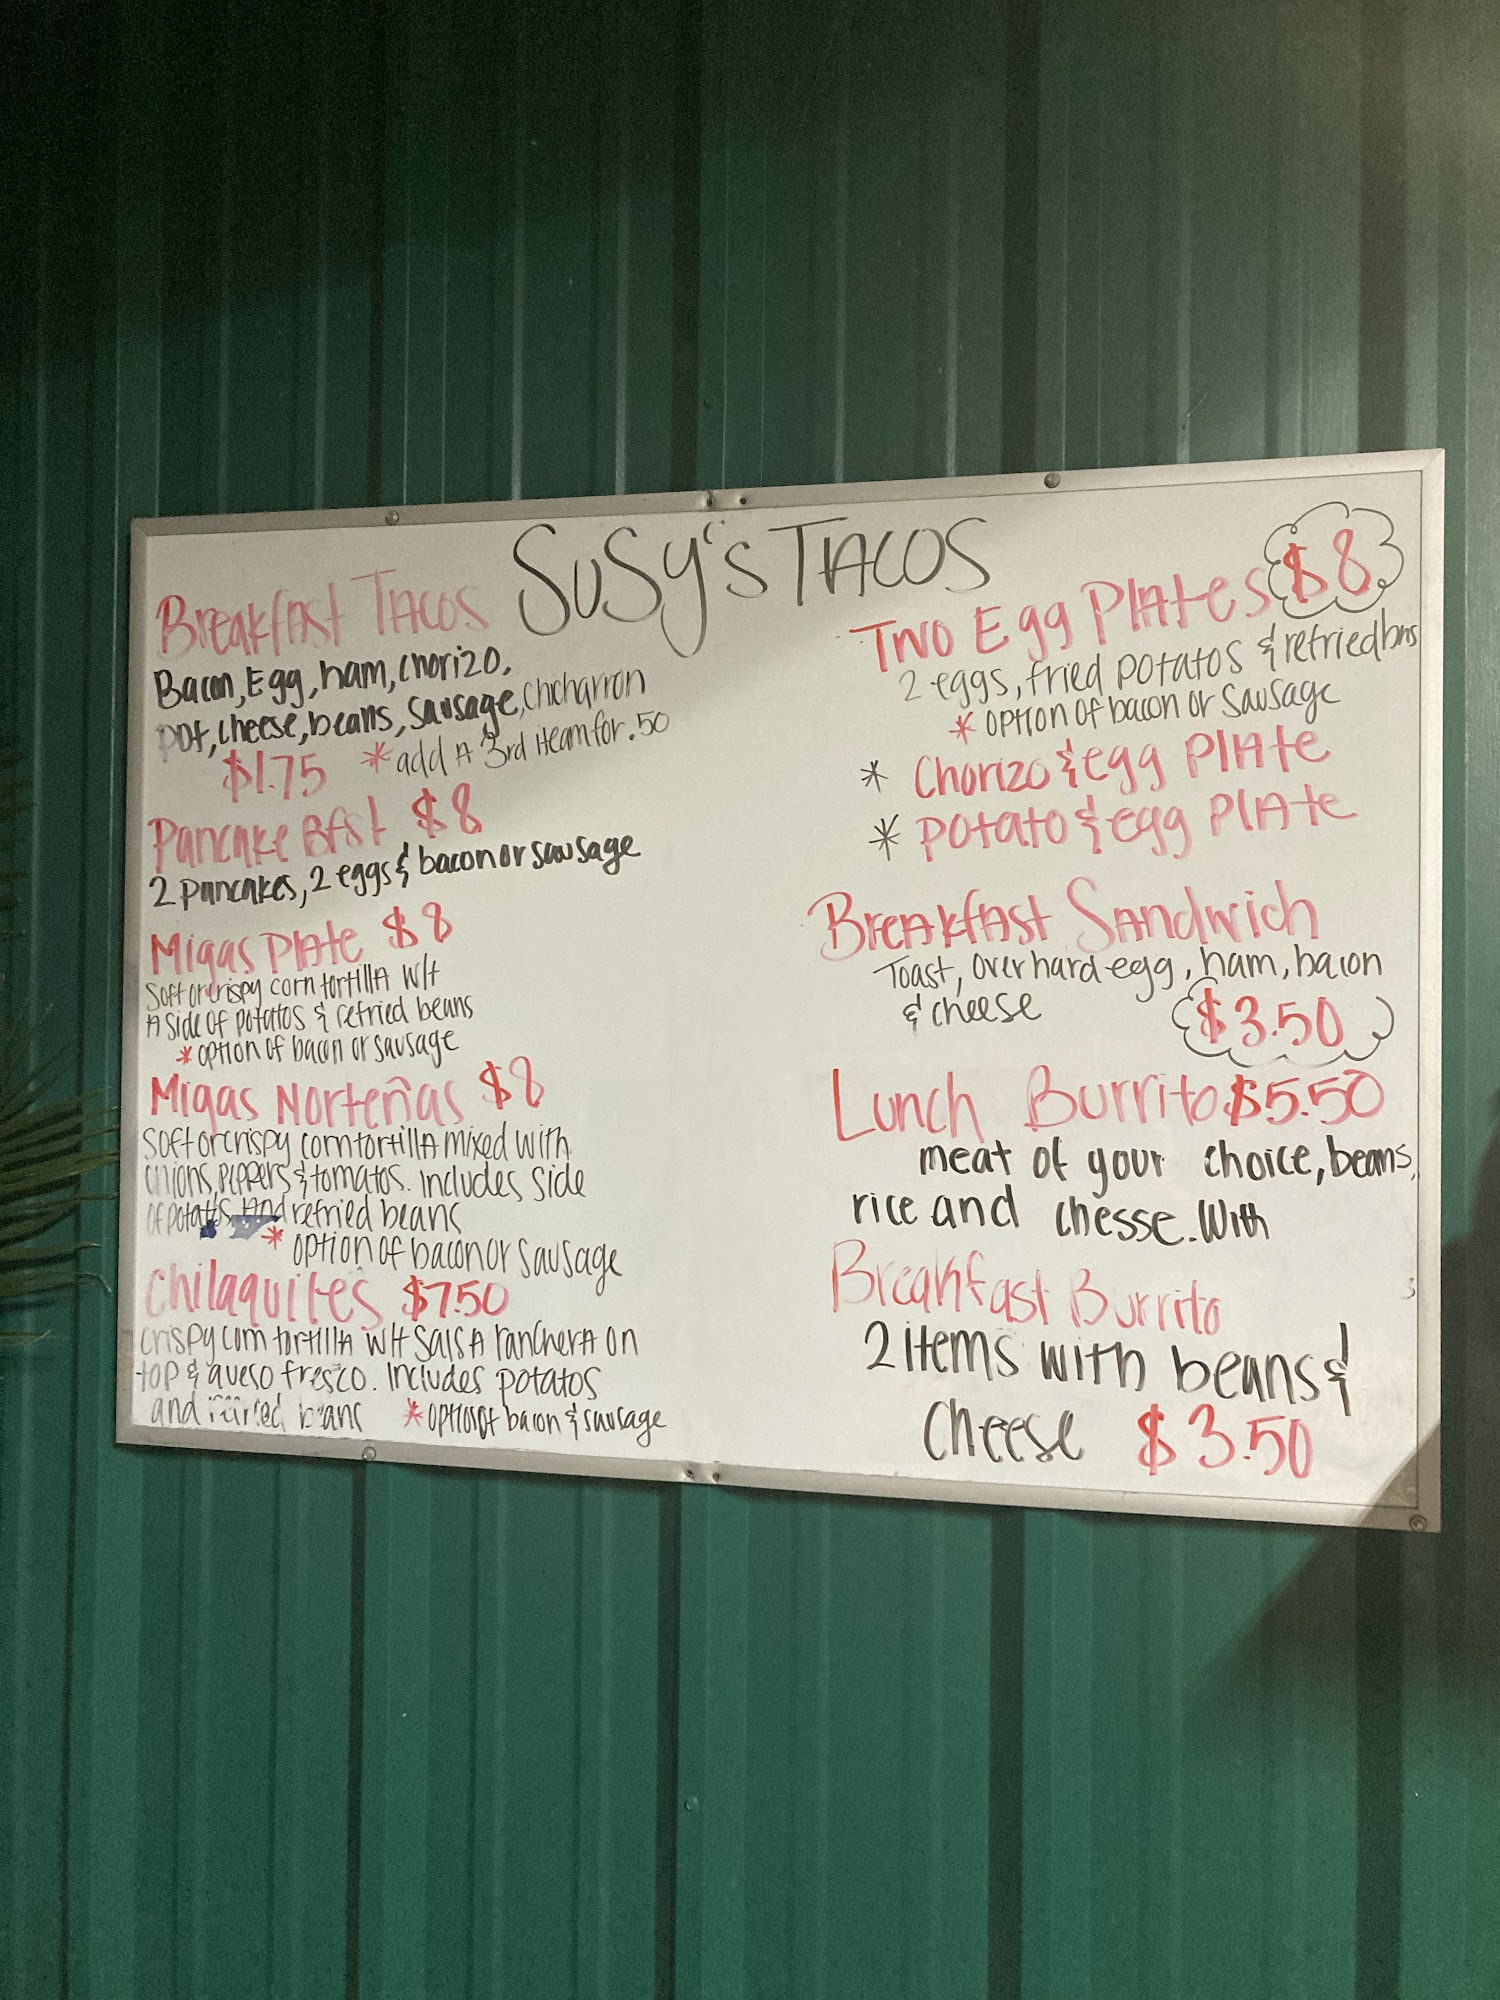 SUSY'S TACOS
Breakfast TACOS
Bacon, Egg, ham, chorizo,
pot, cheese, beans, sausage, chicharron
$1.75 * add A 3rd Iteam for .50
Pancake Bfst $8
2 pancakes, 2 eggs & bacon or sausage
Migas Plate $8
Soft or crispy corn tortilla w/t
A side of potatos & refried beans
* option of bacon or sausage
Migas Norteñas $8
Soft or crispy corn tortilla mixed with
onions, peppers & tomatos. Includes side
of potatos, and refried beans
* option of bacon or sausage
Chilaquiles $7.50
crispy corn tortilla w/t salsa ranchera on
top & queso fresco. Includes potatos
and refried beans * option of bacon & sausage
Two Egg Plates $8
2 eggs, fried potatos & refried bns
* option of bacon or sausage
* Chorizo & egg Plate
* Potato & egg Plate
Breakfast Sandwich
Toast, over hard egg, ham, bacon
& cheese
$3.50
Lunch Burrito $5.50
meat of your choice, beans,
rice and chesse. With
Breakfast Burrito
2 items with beans &
cheese $3.50